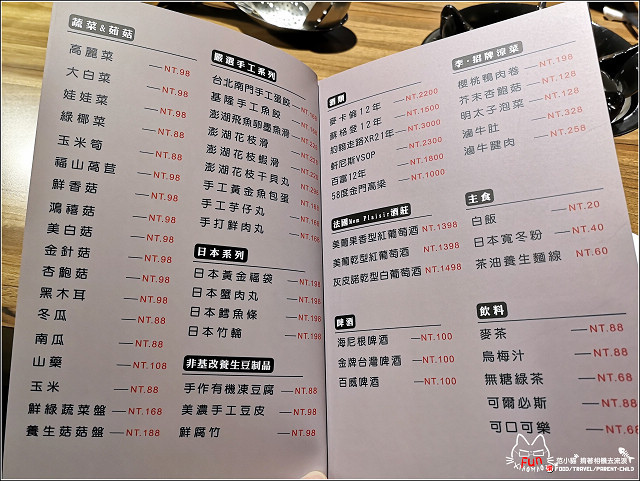 蔬菜&茹菇
高麗菜 NT.98
大白菜 NT.98
娃娃菜 NT.98
綠椰菜 NT.98
玉米筍 NT.98
福山萵苣 NT.98
鮮香菇 NT.98
鴻禧菇 NT.98
美白菇 NT.98
金針菇 NT.98
杏鮑菇 NT.98
黑木耳 NT.98
冬瓜 NT.88
南瓜 NT.88
山藥 NT.108
玉米 NT.88
鮮綠蔬菜盤 NT.168
養生菇菇盤 NT.188
嚴選手工系列
台北南門手工蛋餃
基隆手工魚餃
澎湖飛魚卵墨魚滑
澎湖花枝滑
澎湖花枝蝦滑
澎湖花枝干貝丸
手工黃金魚包蛋
手工芋仔丸
手打鮮肉丸
日本系列
日本黃金福袋 NT.198
日本蟹肉丸 NT.198
日本鱈魚條 NT.198
日本竹輪 NT.198
非基改養生豆制品
手作有機凍豆腐 NT.88
美濃手工豆皮 NT.98
鮮腐竹 NT.98
麥卡倫12年 NT.2200
蘇格登12年 NT.1500
約翰走路XR21年 NT.3000
軒尼斯VSOP NT.2300
百富12年 NT.1800
58度金門高梁 NT.1000
法國Mon Plaisir酒莊
美蘭果香型紅葡萄酒 NT.1398
美蘭乾型紅葡萄酒 NT.1398
灰皮諾乾型白葡萄酒 NT.1498
啤酒
海尼根啤酒 NT.100
金牌台灣啤酒 NT.100
百威啤酒 NT.100
李·招牌涼菜
櫻桃鴨肉卷 NT.198
芥末杏鮑菇 NT.128
明太子泡菜 NT.128
滷牛肚 NT.328
滷牛腱肉 NT.258
主食
白飯 NT.20
日本寬冬粉 NT.40
茶油養生麵線 NT.60
飲料
麥茶 NT.88
烏梅汁 NT.88
無糖綠茶 NT.68
可爾必斯 NT.88
可口可樂 NT.68
FUN
XIAOMAO
范小貓 揹著相機去流浪
FOOD/TRAVEL/PARENT-CHILD